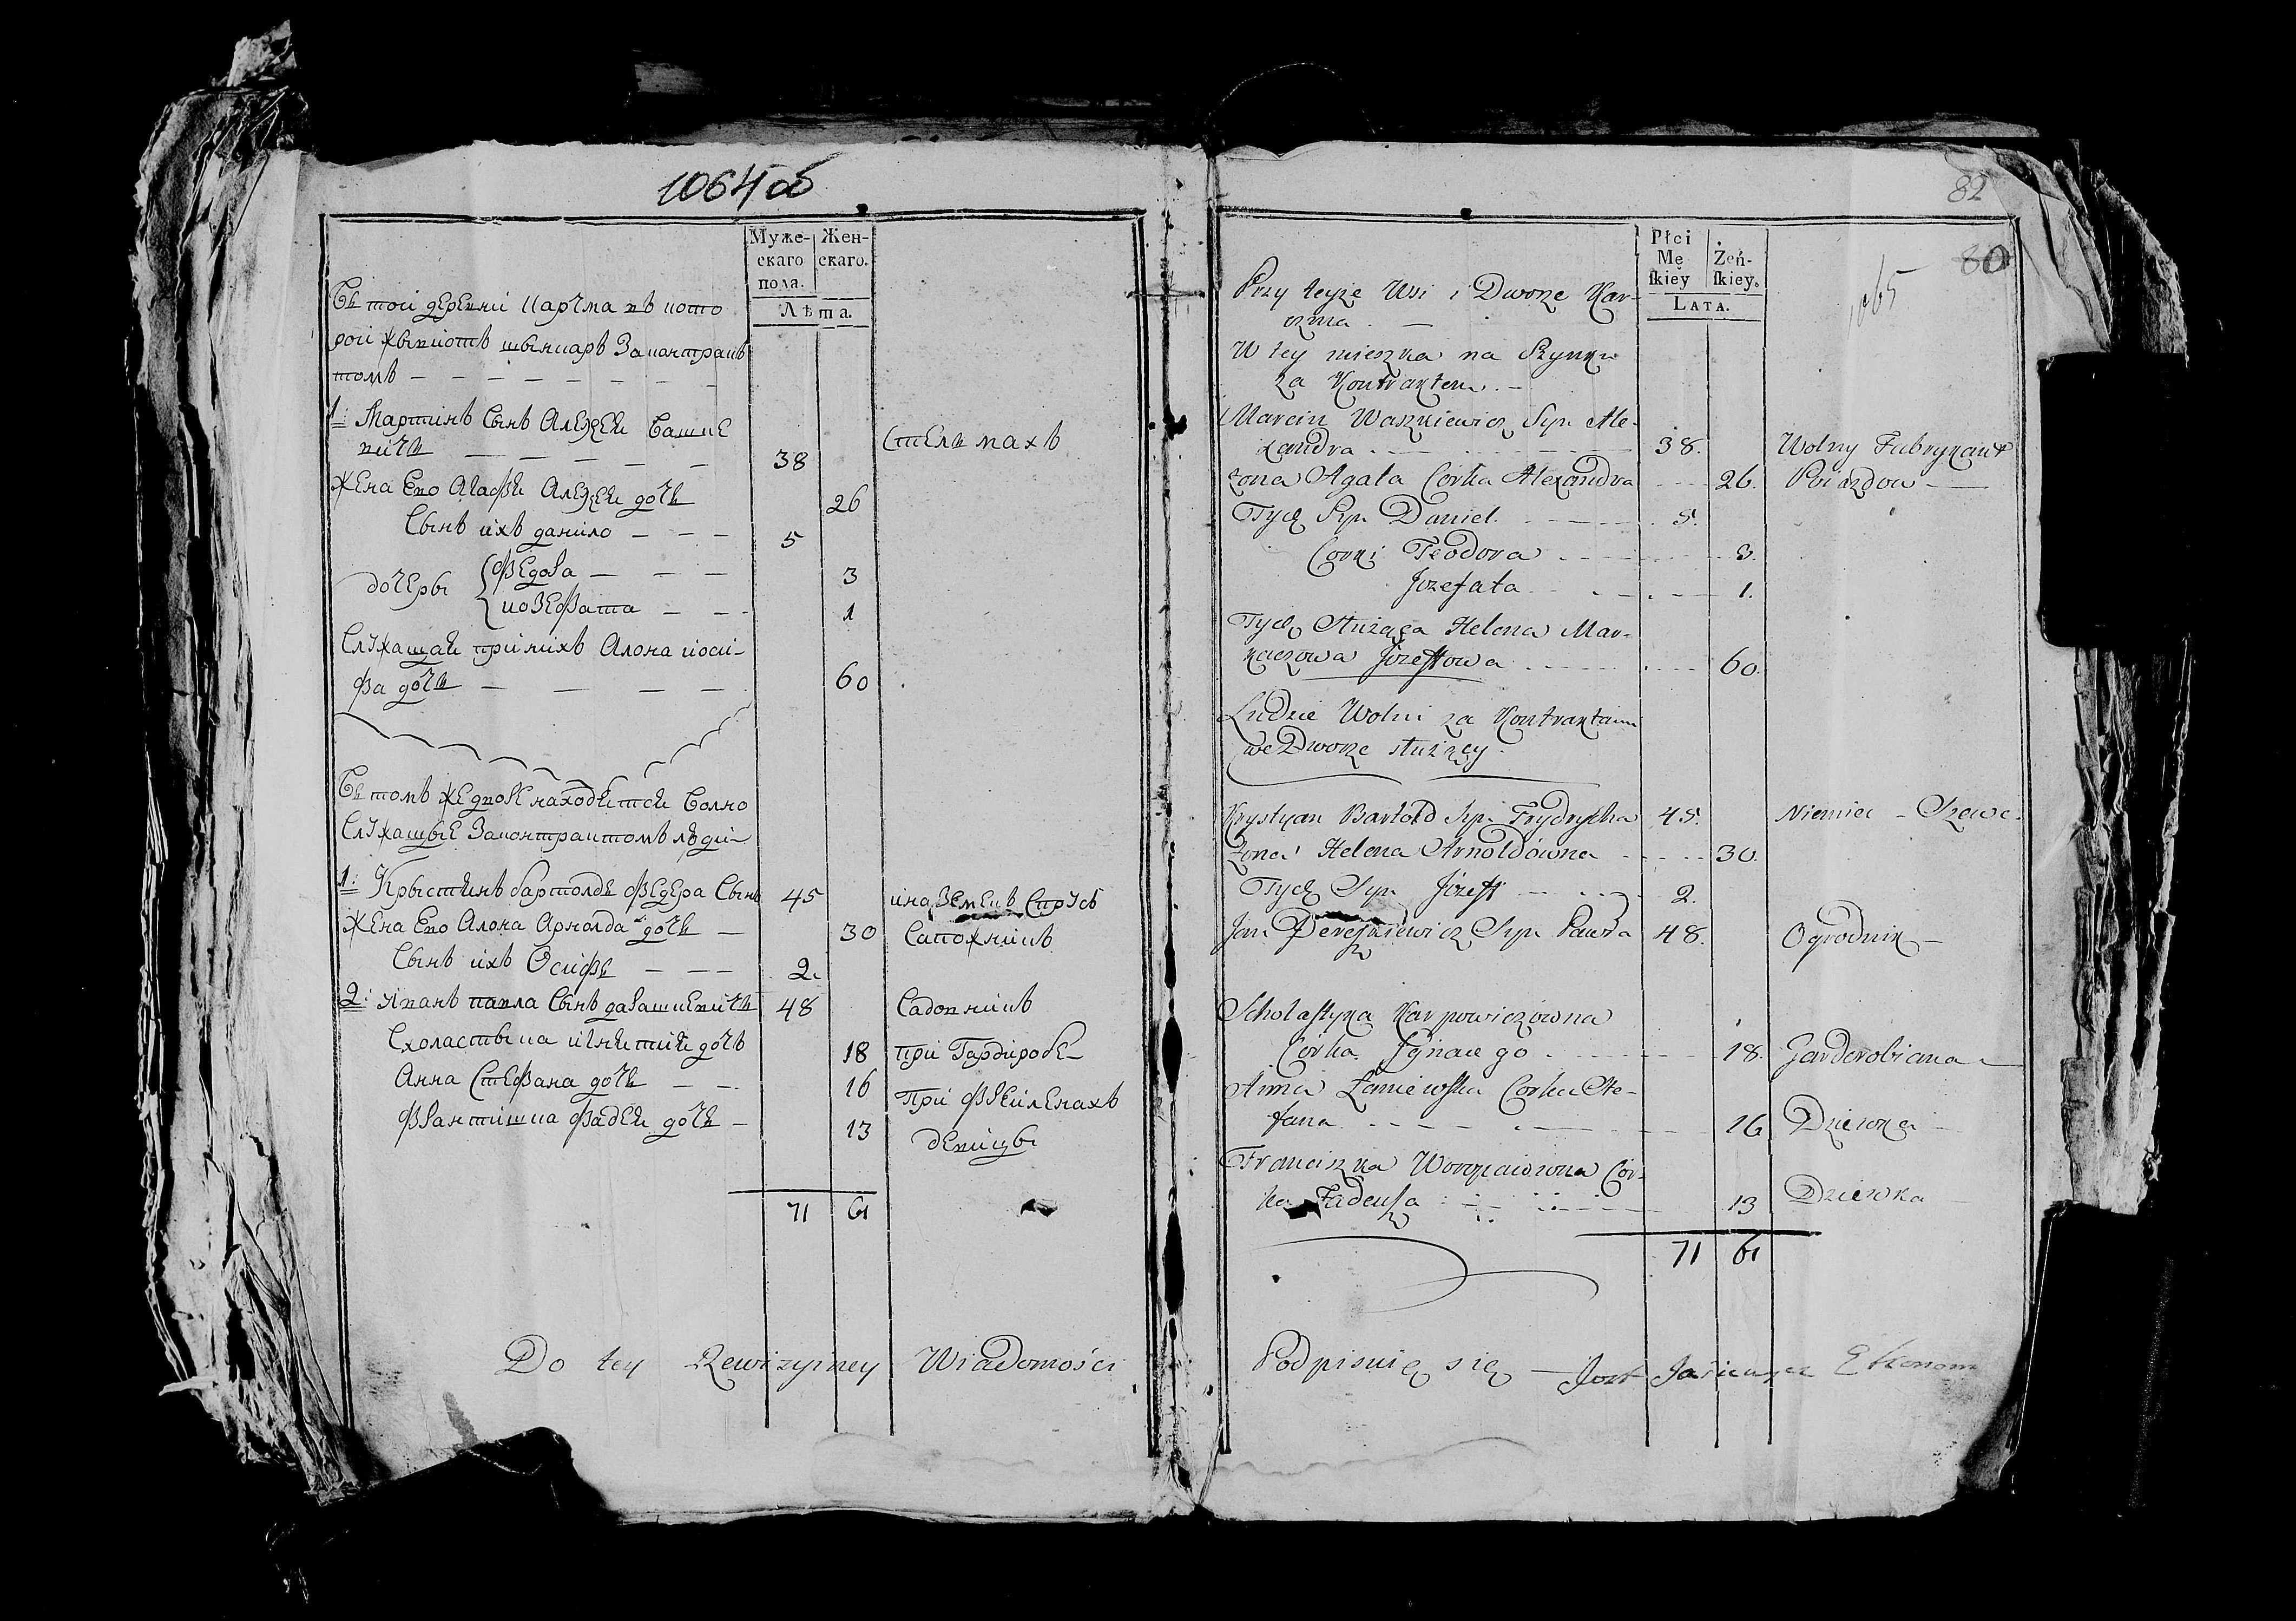 1064 об
Муже-
скаго
пола.
Жен-
скаго.
Лѣта.
въ тои деревни карчма въ кото
рои живіотъ шынкаръ За контрак
томъ
1: Мартинъ Сынъ Алеѯея Вашке
вичъ 38 Стельмахъ
жена Его Агафія Алеѯея дочь 26
Сынъ ихъ данило 5
дочеры Федора 3
иозефата 1
Служащая при нихъ Алона иоси-
фа дочь 60
въ томъ же дворе находятся волно
Служащые Законтрактомъ люди
1: Крыстянъ бартолдъ Сынъ 45
жена Его Алона Арнолда дочь 30 Сапожникъ
Сынъ ихъ Осифъ 2.
2: Иванъ павла Сынъ 48 Садовникъ
Схоластыка игнятия дочь 18 при Гардиробе
Анна Стефана дочь 16 При
Франтишка фадея дочь 13 девицы
71 61
Do tey Rewizyiney Wiadomości
82
80
1065
Płci
Mę
ſkiey
Żeń-
ſkiey.
LATA.
Przy teyże Wsi i Dworze Kar-
czma.
W tey mieszka na Szynku
za Kontraktem.
Marcin Waszkiewicz Syn Ale-
xandra 38. Wolny Fabrykant
żona Agata Corka Alexandra 26. Poiazdow
Tych Syn Daniel. 5.
Corki Teodora 3.
Jozefata 1.
Tych Służąca Helena Mar-
Jozeffowa 60.
Ludzie Wolni za Kontraktami
we Dworze służący.
Krystyan Bartold Syn Frydrycha 45. Niemiec - Szewc.
Zona Helena Arnoldówna 30.
Tych Syn Józeff 2.
Jan Syn Pawła 48. Ogrodnik
Scholastyka Karpowiczówna
Córka Ignacego 18. Garderobiana
Anna Corka Ste-
fana 16 Dziewka
Franciszka Cór-
ka Tadeusza 13 Dziewka
71 61
Podpisuię się Ekonom